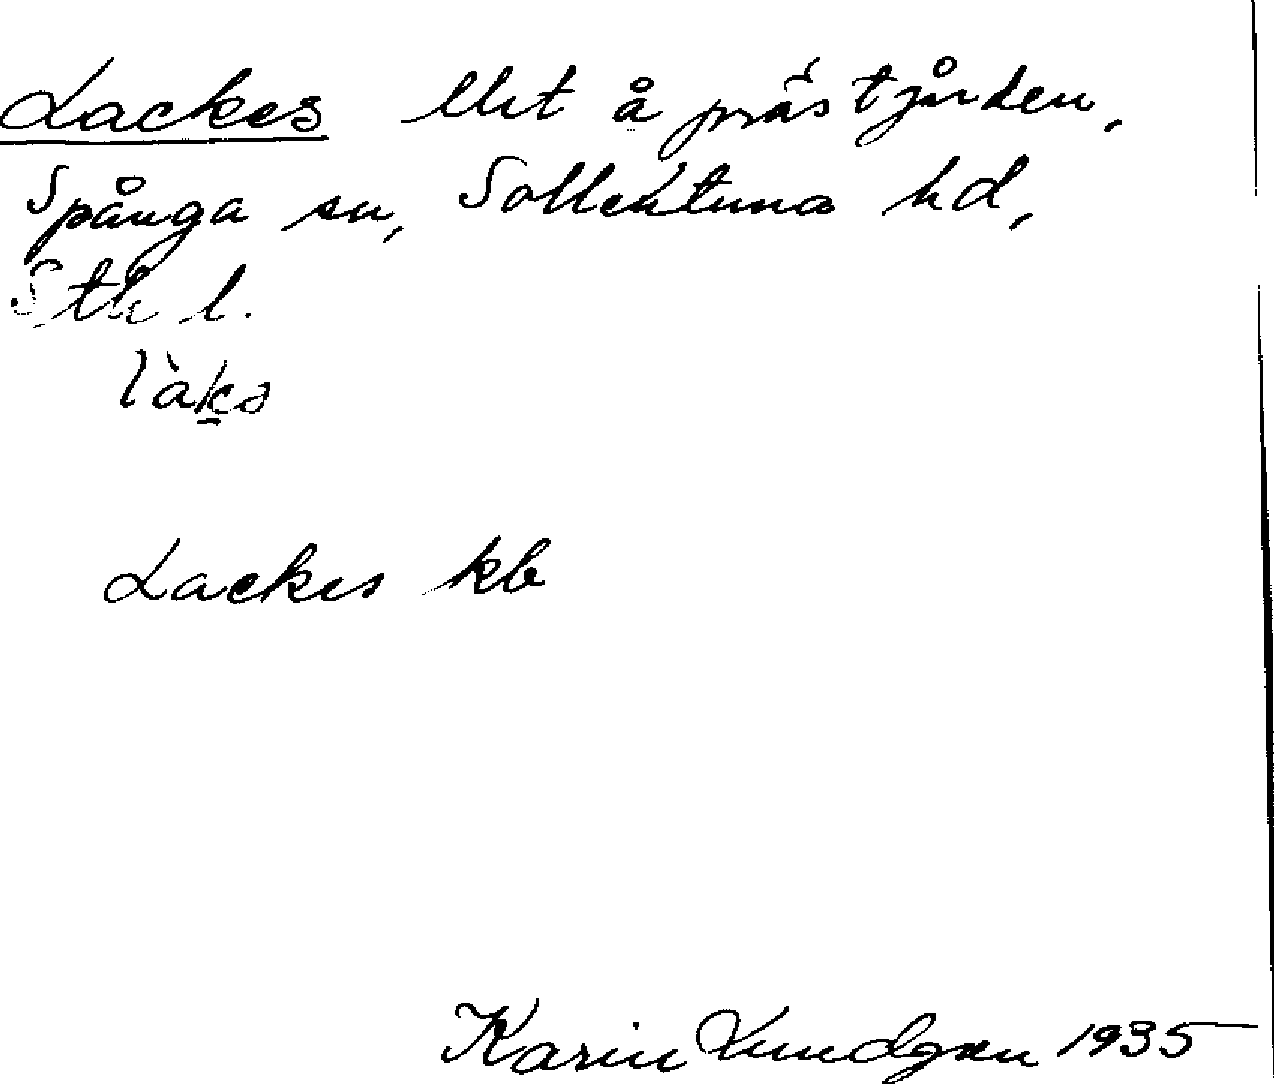 Lackes lht å prästgården,
Spånga sn, Sollentuna hd,
Sth l.
Lackes kb
Karin Lundgren 1935